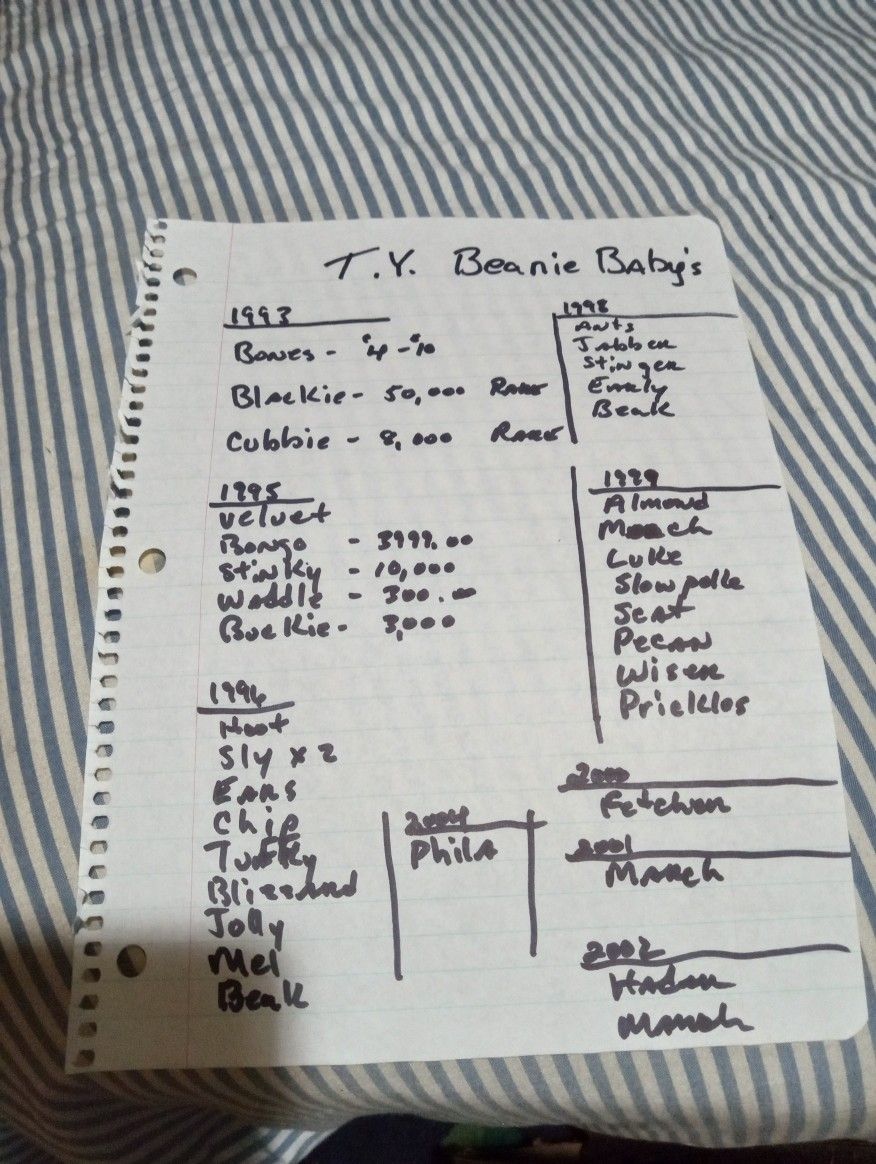 T.Y. Beanie BAby's
1993
Bones - $4 - $10
Blackie - 50,000 RARE
Cubbie - 8,000 RARE
1995
Velvet
Bongo - 3999.00
Stinky - 10,000
Waddle - 300.00
Buckie - 3,000
1996
Hoot
Sly x 2
EARS
Chip
Tuffky
Blizzard
Jolly
Mel
Beak
2004
PhilA
1998
ANts
Jabber
Stinger
Early
Beak
1999
Almond
Mooch
Luke
Slowpoke
Scat
PecAN
Wiser
2000
Fetcher
2001
MARCh
2002